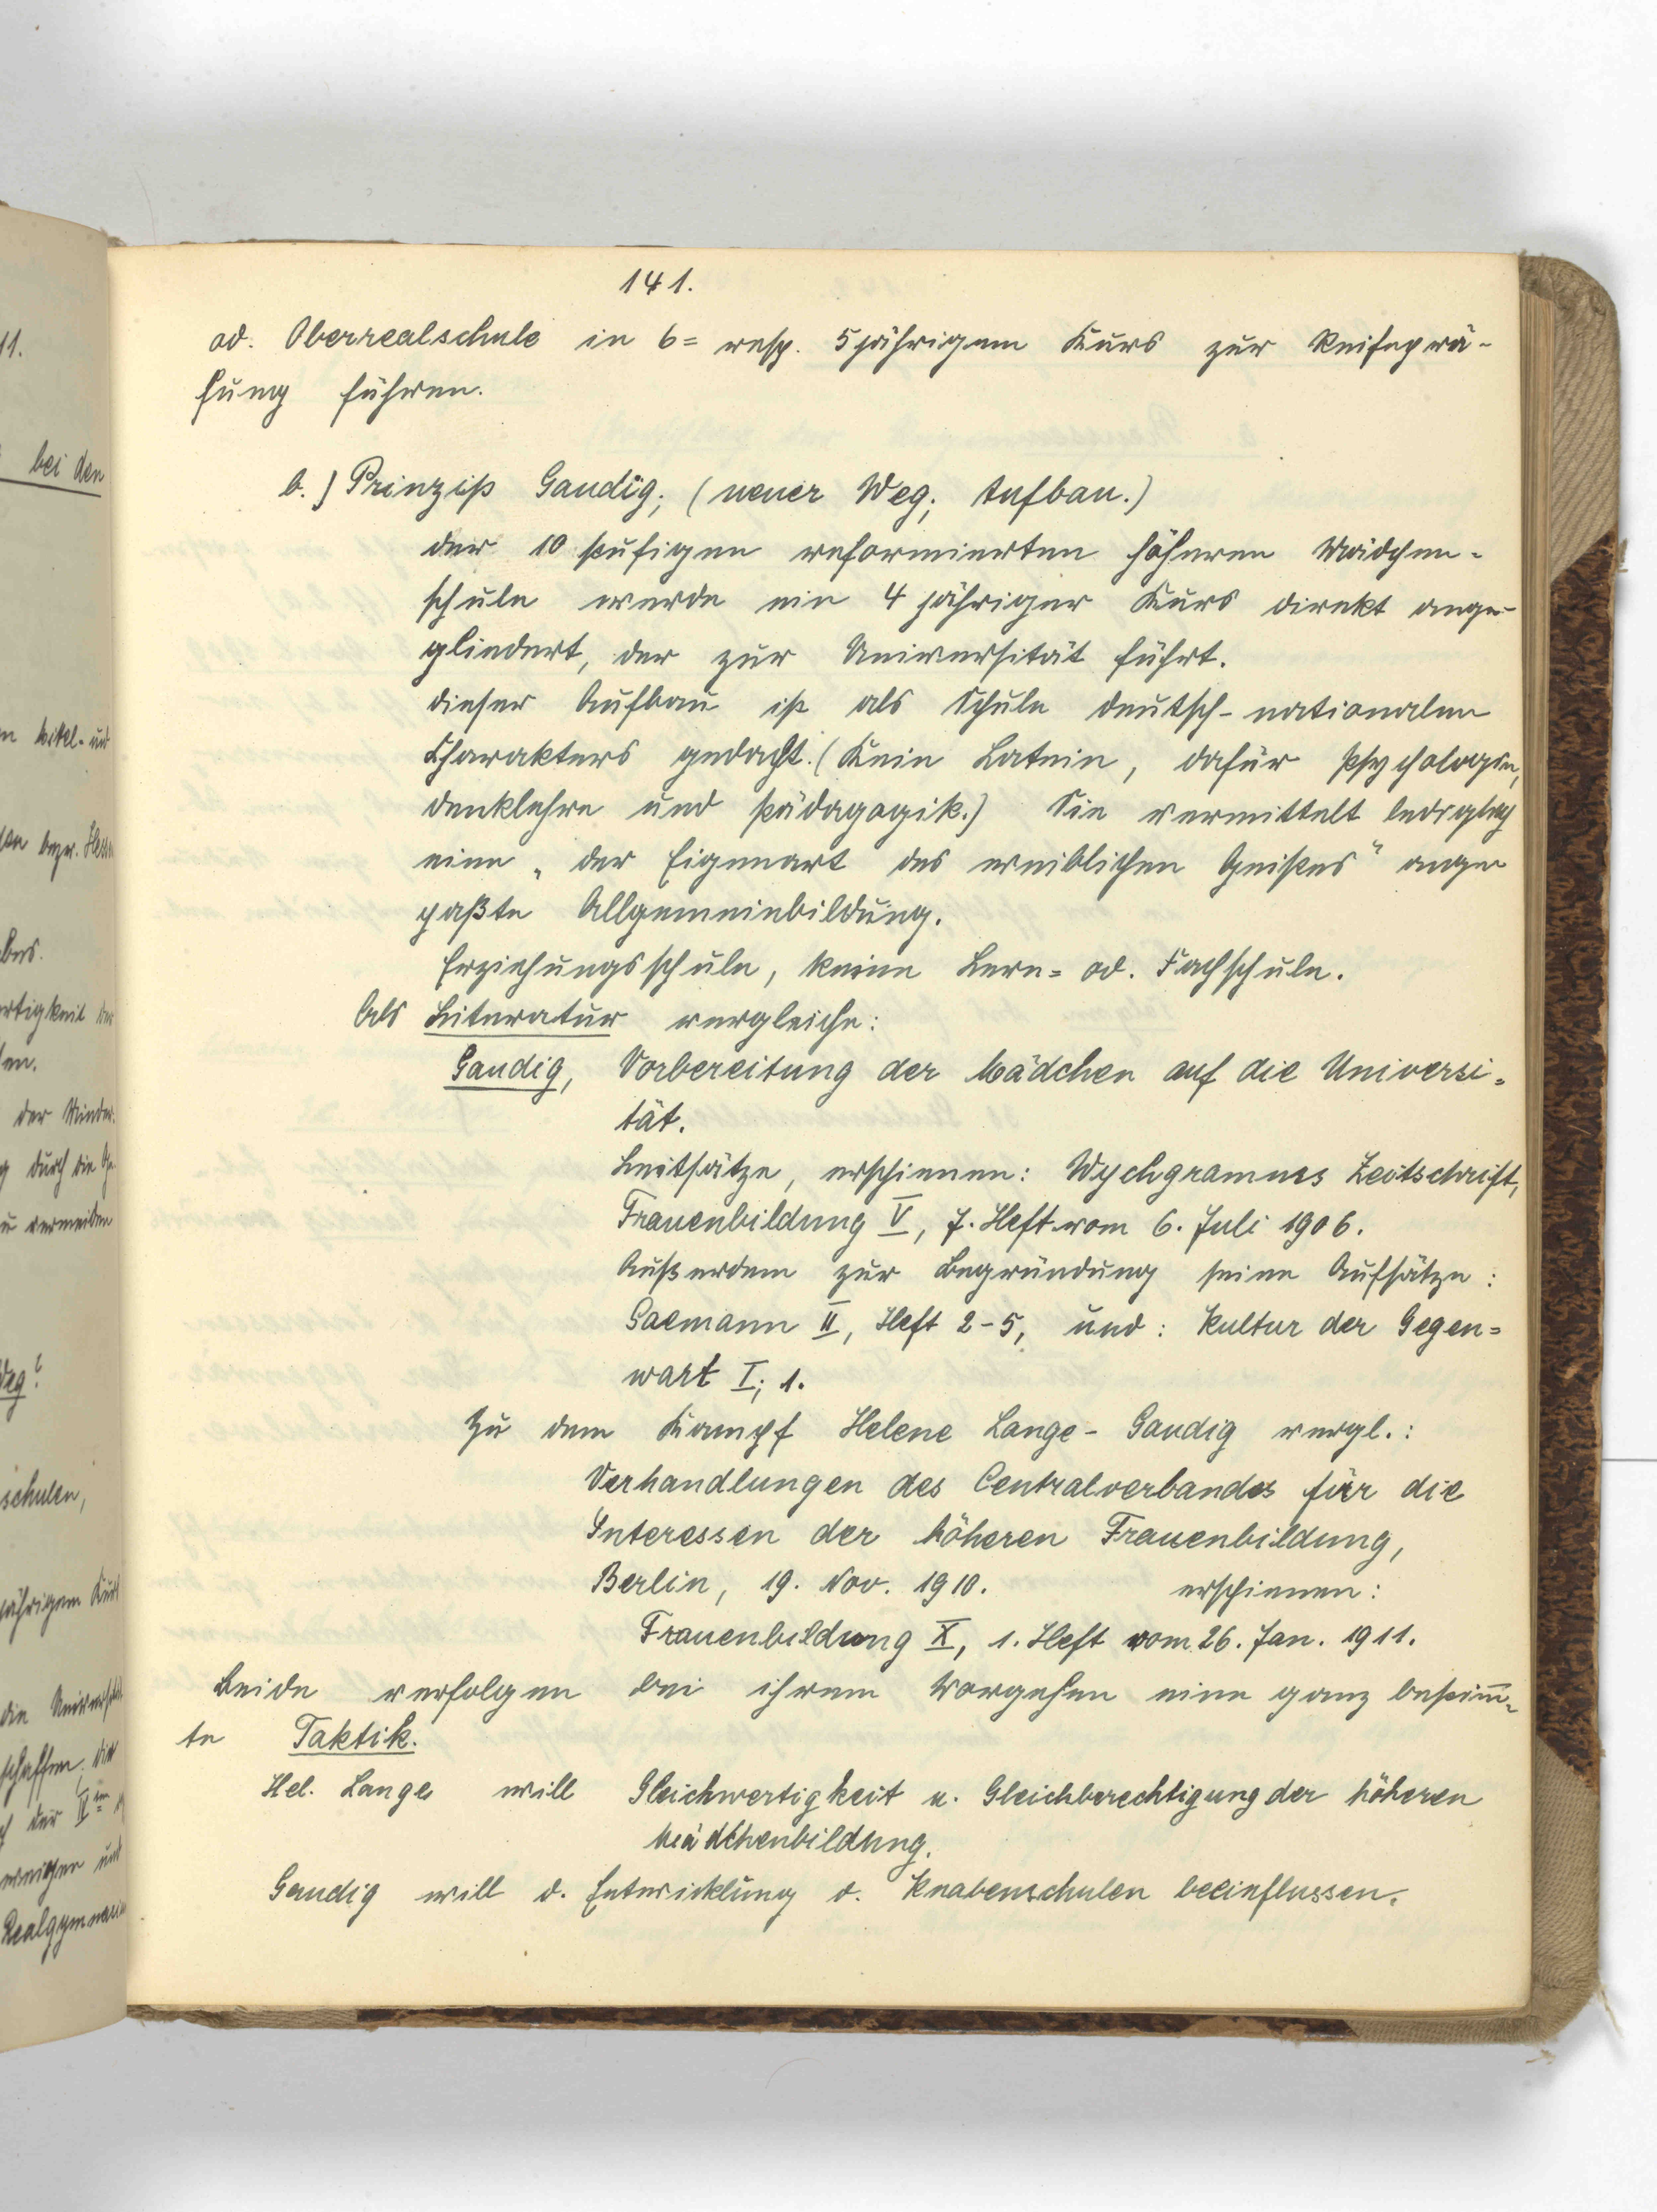 141.
od. Oberrealschule in 6= resp. 5jährigem Kurs zur Reifeprü-
fung führen.
b.) Prinzip Gaudig; (neuer Weg; Aufbau.)
der 10 stufigen reformierten höheren Mädchen-
schule werde ein 4 jähriger Kurs direkt ange-
gliedert, der zur Universität führt.
dieser Aufbau ist als Schule deutsch-nationalen
Charakters gedacht. (Kein Latein, dafür Psychologie,
denklehre und Pädagogik.) Sie vermittelt lediglich
eine „der Eigenart des weiblichen Geistes" ange
paßte Allgemeinbildung.
Erziehungsschule, keine Lern= od. Fachschule.
Als Literatur vergleiche:
Gaudig, Vorbereitung der Mädchen auf die Universi=
tät.
Leitsätze, erschienen: Wychgramms Zeitschrift,
Frauenbildung V, 7. Heft vom 6. Juli 1906.
Außerdem zur Begründung seine Aufsätze:
Saemann II, Heft 2-5, und: Kultur der Gegen=
wart I; 1.
Zu dem Kampf Helene Lange - Gaudig vergl.:
Verhandlungen des Centralverbandes für die
Interessen der höheren Frauenbildung,
Berlin, 19. Nov. 1910. erschienen:
Frauenbildung X, 1. Heft vom 26. Jan. 1911.
Beide verfolgen bei ihrem Vorgehen eine ganz bestim̅-
te Taktik.
Hel. Lange will Gleichwertigkeit u. Gleichberechtigung der höheren
Mädchenbildung.
Gaudig will d. Entwicklung d. Knabenschulen beeinflussen.